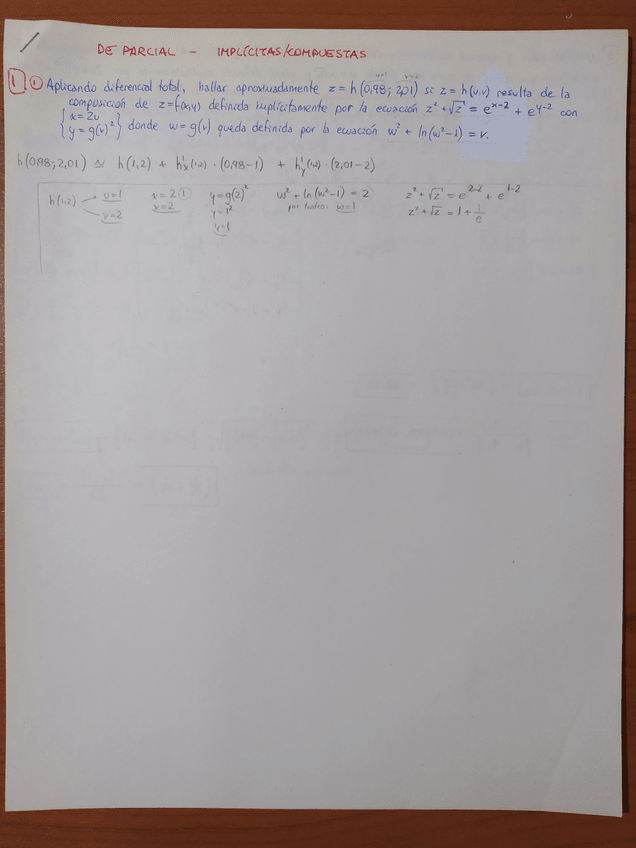 DE PARCIAL - IMPLÍCITAS/COMPUESTAS
1 ① Aplicando diferencial total, hallar aproximadamente z = h(0,98; 2,01) si z = h(u,v) resulta de la
composición de z = f(x,y) definida implícitamente por la ecuación z² + √z = e^(x-2) + e^(y-2) con
{ x = 2u
y = g(v)² } donde w = g(v) queda definida por la ecuación w² + ln(w²-1) = v.
u=1 v=2
h(0,98; 2,01) ≈ h(1,2) + h'x (1,2) · (0,98-1) + h'y (1,2) · (2,01-2)
h(1,2) u=1 x=2(1) y=g(2)² w² + ln(w²-1) = 2 z² + √z = e^(2-2) + e^(1-2)
v=2 x=2 y=1² por tanteo: w=1 z² + √z = 1 + 1/e
y=1